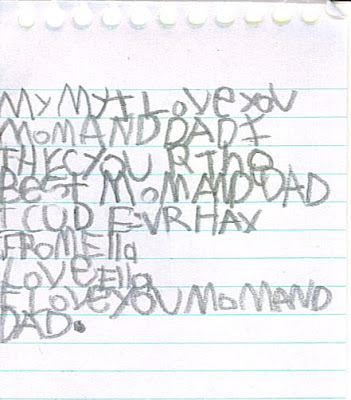 MY MY I LoVe YoU
MoM AND DAD I
THEC YOU R THe
BeST MoM AND DAD
I CUD EVR HAV
FROM Ella
LoVe Ella
I LoVe YOU MoM AND
DAD.